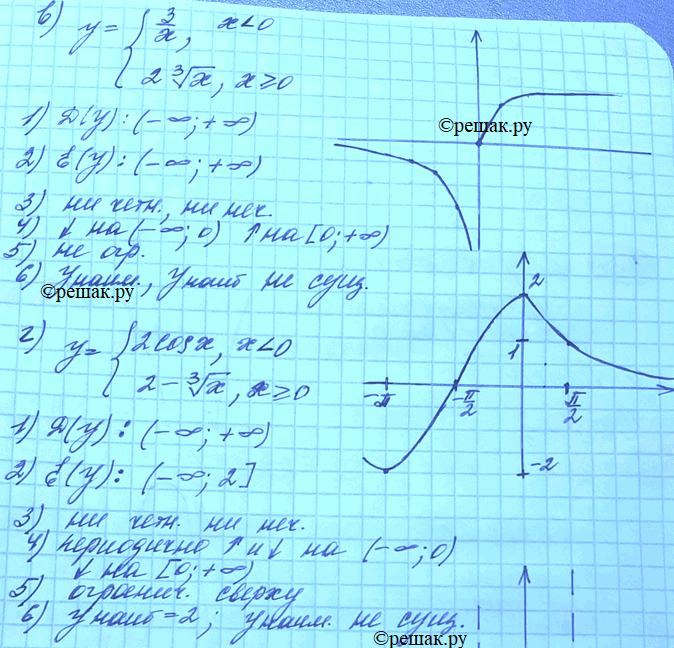 в) y = { 3/x, x<0
2∛x, x≥0
1) D(y): (-∞; +∞)
2) E(y): (-∞; +∞)
3) ни четн., ни неч.
4) ↓ на (-∞; 0) ↑ на [0; +∞)
5) не огр.
6) Yнаим., Yнаиб не сущ.
©решак.ру
©решак.ру
г) y = { 2cosx, x<0
2-∛x, x≥0
1) D(y): (-∞; +∞)
2) E(y): (-∞; 2]
3) ни четн. ни неч.
4) периодично ↑ и ↓ на (-∞; 0)
↓ на [0; +∞)
5) огранич. сверху
6) Yнаиб = 2; Yнаим. не сущ.
©решак.ру
2
1
-π
-π/2
π/2
-2